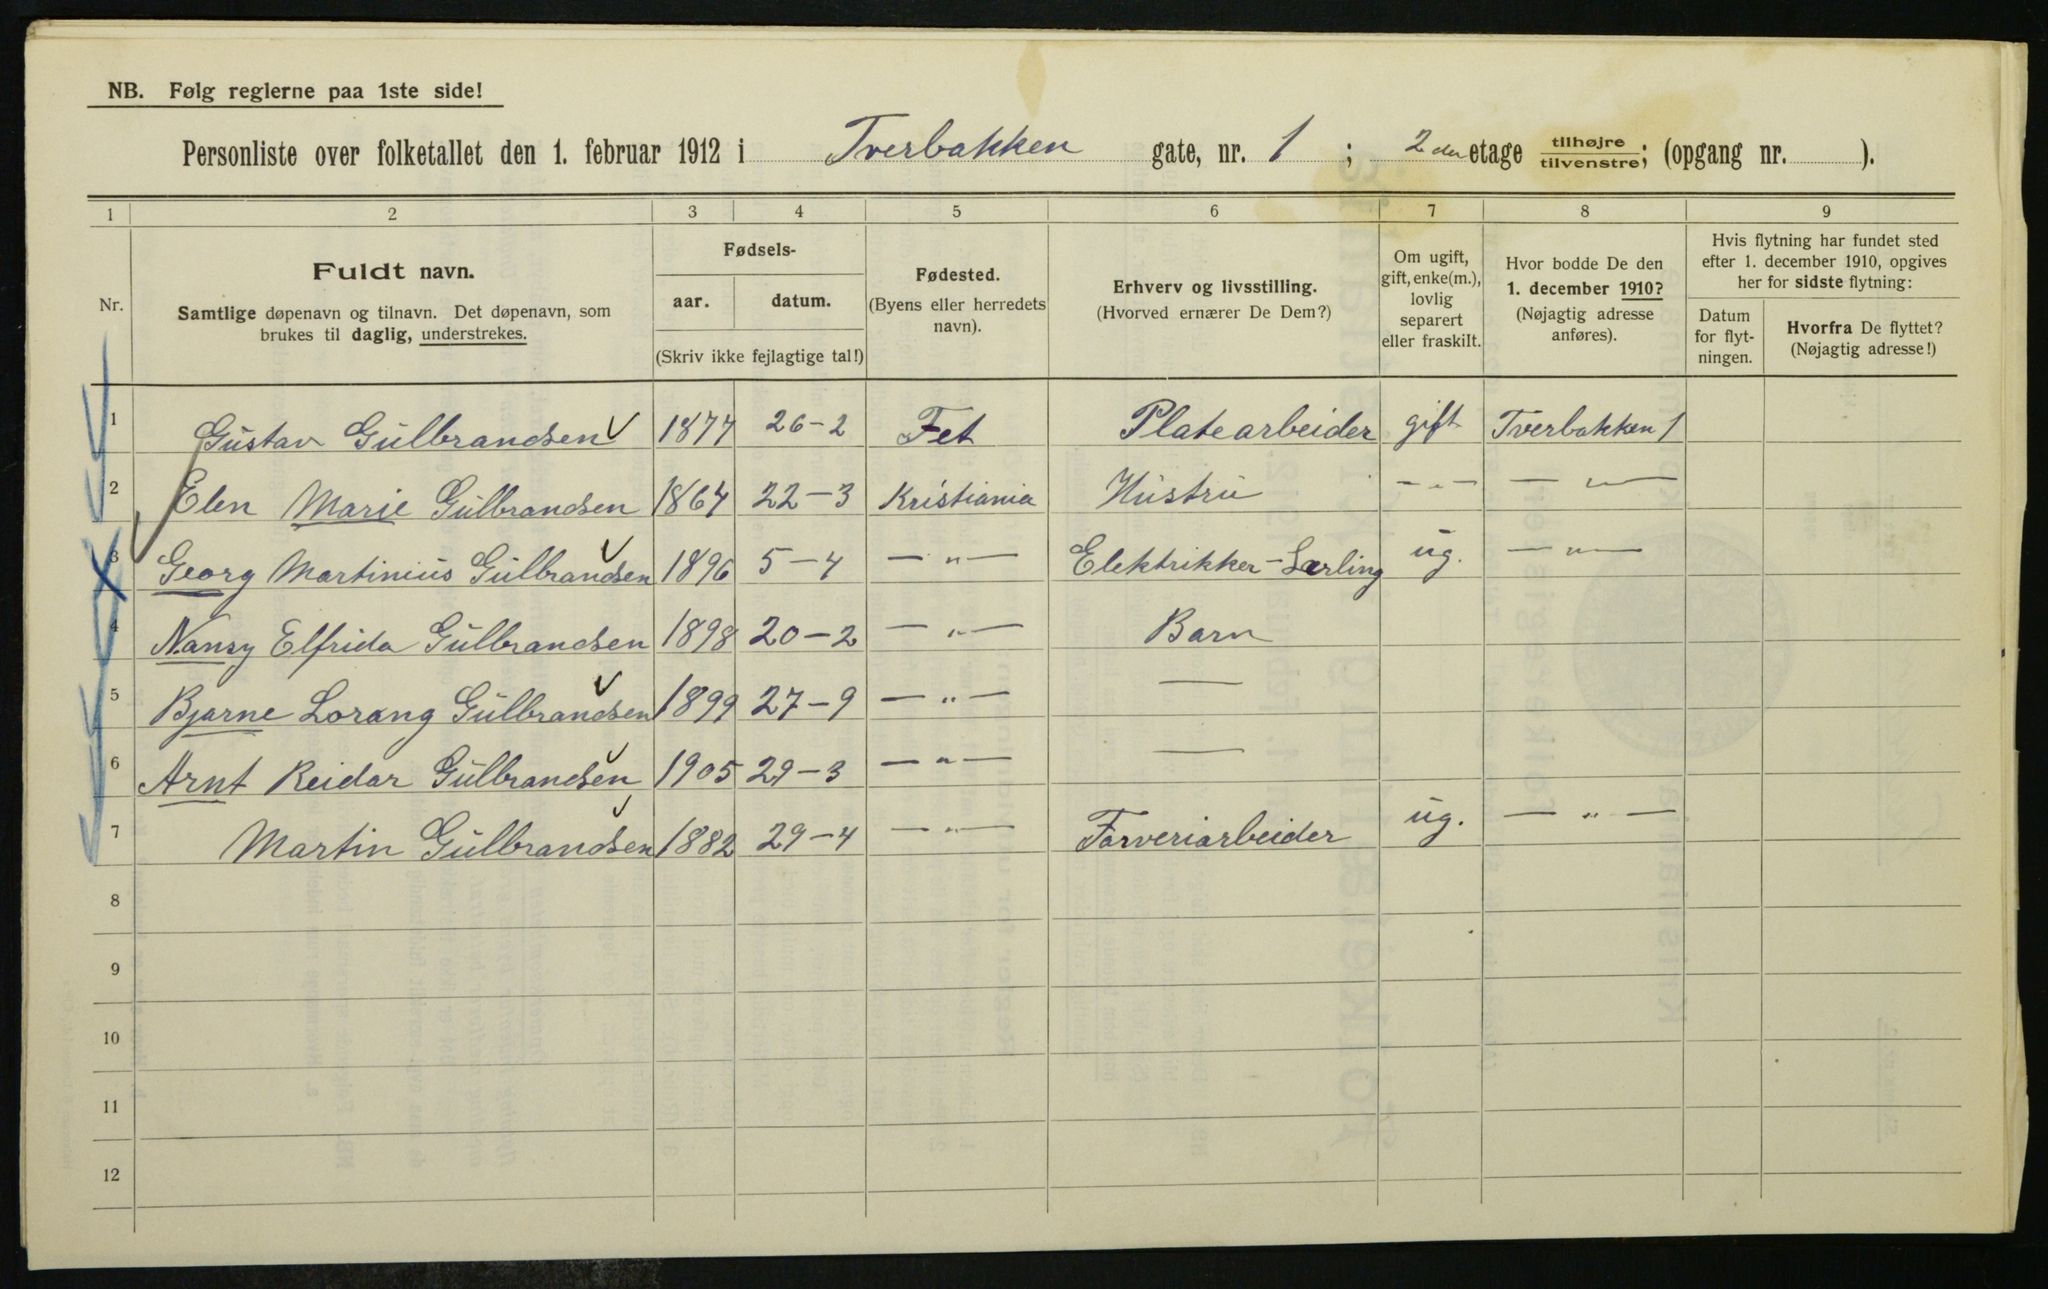 NB. Følg reglerne paa 1ste side!
Personliste over folketallet den 1. februar 1912 i Tverbakken gate, nr. 1 ; 2 den etage tilhøjre tilvenstre; (opgang nr. ).
1 2 3 4 5 6 7 8 9
Nr.
Fuldt navn.
Samtlige døpenavn og tilnavn. Det døpenavn, som
brukes til daglig, understrekes.
Fødsels-
aar. datum.
(Skriv ikke fejlagtige tal!)
Fødested.
(Byens eller herredets
navn).
Erhverv og livsstilling.
(Hvorved ernærer De Dem?)
Om ugift,
gift, enke(m.),
lovlig
separert
eller fraskilt.
Hvor bodde De den
1. december 1910?
(Nøjagtig adresse
anføres).
Hvis flytning har fundet sted
efter 1. december 1910, opgives
her for sidste flytning:
Datum
for flyt-
ningen.
Hvorfra De flyttet?
(Nøjagtig adresse!)
1 Gustav Gulbrandsen 1877 26-2 Fet Platearbeider gift Tverbakken 1
2 Elen Marie Gulbrandsen 1864 22-3 Kristiania Hustru -"- -"-
3 Georg Martinius Gulbrandsen 1896 5-4 -"- Elektrikker-Lærling ug. -"-
4 Nansy Elfrida Gulbrandsen 1898 20-2 -"- Barn
5 Bjarne Lorang Gulbrandsen 1899 27-9 -"- —
6 Arnt Reidar Gulbrandsen 1905 29-3 -"- —
7 Martin Gulbrandsen 1882 29-4 -"- Farveriarbeider ug. -"-
8
9
10
11
12